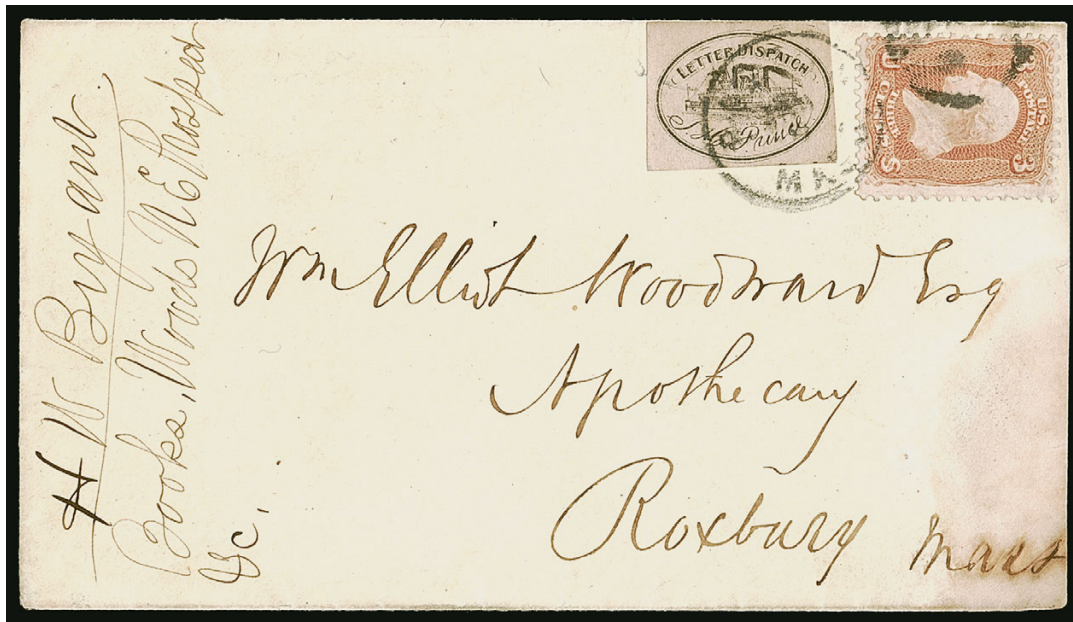 H W Bryant
Books, Woods N E Prospect
&c.
LETTER DISPATCH
J. H. Prince
MA
U.S.
POSTAGE
THREE CENTS
3
Wm Elliot Woodward Esq
Apothecary
Roxbury Mass